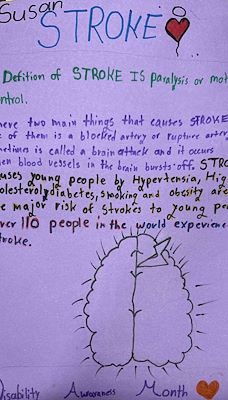 Susan
STROKE
Defition of STROKE IS paralysis or mot
ntrol.
here two main things that causes STROKE
e of them is a blocked artery or rupture arter
metimes is called a brain attack and it occurs
hen blood vessels in the brain bursts off. STRO
uses young people by Hypertensia, Hig
olesterol, diabetes, smoking and obesity are
e major risk of strokes to young pe
ver 110 people in the world experience
troke.
Disability Awareness Month